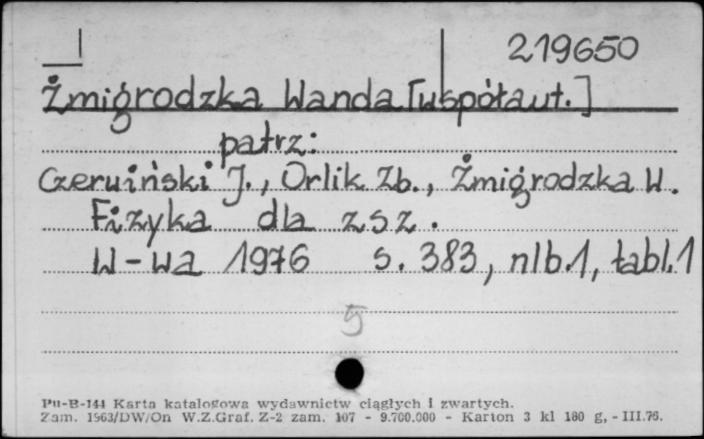 219650
Żmigrodzka Wanda [współaut.]
patrz:
Czerwiński J., Orlik Zb., Żmigrodzka W.
Fizyka dla zsz.
W-wa 1976 s. 383, nlb.1, tabl.1
5
Pu-B-144 Karta katalogowa wydawnictw ciągłych i zwartych.
Zam. 1563/DW/On W.Z.Graf. Z-2 zam. 107 - 9.700.000 - Karton 3 kl 180 g, - III.76.